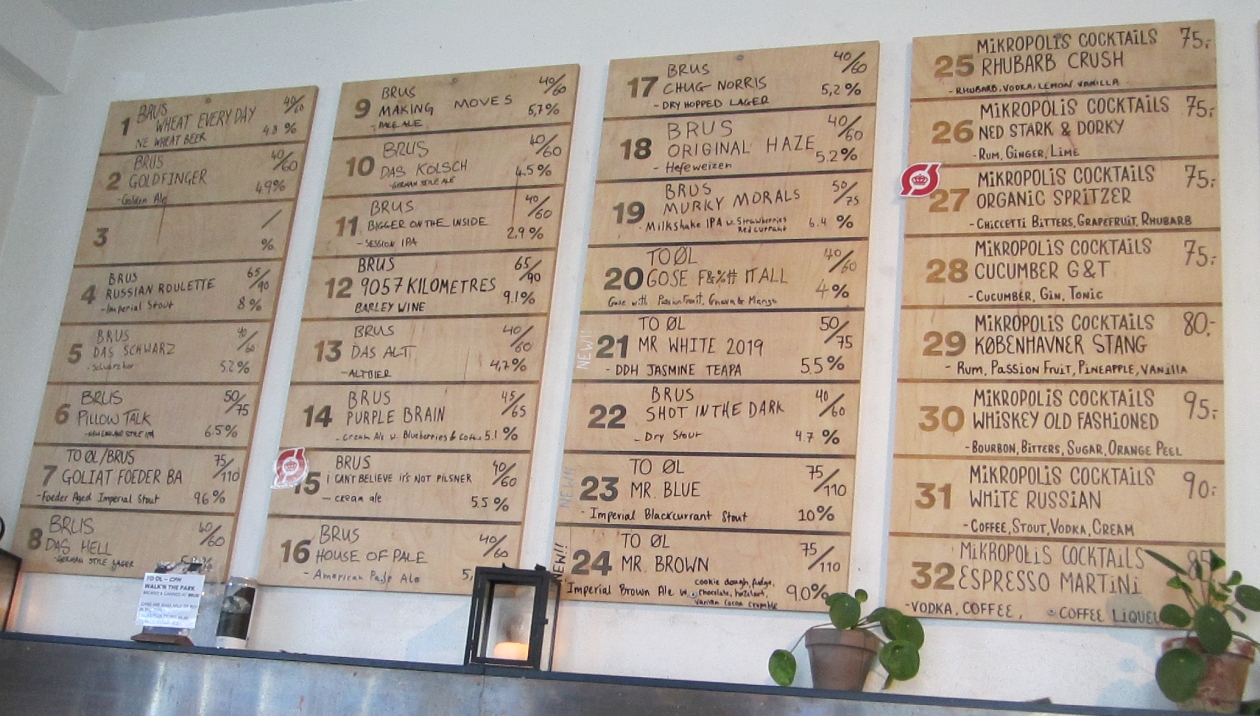 1 BRUS 40/60
WHEAT EVERY DAY
NE WHEAT BEER 4.8 %
2 BRUS 40/60
GOLDFINGER
-Golden Ale 4.9%
3 /
%
4 BRUS 65/90
RUSSIAN ROULETTE
-Imperial Stout 8 %
5 BRUS 40/60
DAS SCHWARZ
-Schwarzbier 5.2 %
6 BRUS 50/75
PILLOW TALK
-NEW ENGLAND STYLE IPA 6.5%
7 TO ØL/BRUS 75/110
GOLIAT FOEDER BA
-Foeder Aged Imperial Stout 9.6 %
8 BRUS 40/60
DAS HELL
-GERMAN STYLE LAGER
TO ØL - CPH
WALK'N THE PARK
9 BRUS 40/60
MAKING MOVES 5,7%
-PALE ALE
10 BRUS 40/60
DAS KÖLSCH 4.5%
-GERMAN STYLE ALE
11 BRUS 40/60
BIGGER ON THE INSIDE
-SESSION IPA 2.9 %
12 BRUS 65/90
9057 KILOMETRES
BARLEY WINE 9.1%
13 BRUS 40/60
DAS ALT
-ALTBIER 4,7%
14 BRUS 45/65
PURPLE BRAIN
-Cream Ale w. Blueberries & 5.1 %
15 BRUS 40/60
I CAN'T BELIEVE IT'S NOT PILSNER
- cream ale 5.5 %
16 BRUS 40/60
HOUSE OF PALE
- American Pale Ale 5,
17 BRUS 40/60
CHUG NORRIS 5,2 %
-DRY HOPPED LAGER
18 BRUS 40/60
ORIGINAL HAZE
- Hefeweizen 5.2%
19 BRUS 50/75
MURKY MORALS
-Milkshake IPA w. Strawberries 6.4 %
Redcurrant
20 TO ØL 40/60
GOSE F&%# IT ALL
Gose with Passionfruit, Guava & Mango 4%
NEW!
21 TO ØL 50/75
MR WHITE 2019
- DDH JASMINE TEAPA 5,5 %
22 BRUS 40/60
SHOT IN THE DARK
- Dry Stout 4.7 %
NEW!!
23 TO ØL 75/110
MR. BLUE
- Imperial Blackcurrant Stout 10%
NEW!!
24 TO ØL 75/110
MR. BROWN
Imperial Brown Ale w. cookie dough, fudge, 9.0%
chocolate, hazelnut,
vanilla cocoa crumble
25 MiKROPOLiS COCKTAiLS 75,-
RHUBARB CRUSH
- RHUBARB, VODKA, LEMON, VANILLA
26 MiKROPOLiS COCKTAiLS 75,-
NED STARK & DORKY
- RUM, GINGER, LIME
27 MiKROPOLiS COCKTAiLS 75,-
ORGANIC SPRITZER
- CHICCETTI BITTERS, GRAPEFRUIT, RHUBARB
28 MiKROPOLiS COCKTAiLS 75,-
CUCUMBER G&T
- CUCUMBER, GIN, TONIC
29 MiKROPOLiS COCKTAiLS 80,-
KØBENHAVNER STANG
- RUM, PASSION FRUIT, PINEAPPLE, VANILLA
30 MiKROPOLiS COCKTAiLS 95,-
WHISKEY OLD FASHIONED
- BOURBON, BITTERS, SUGAR, ORANGE PEEL
31 MiKROPOLiS COCKTAiLS 90,-
WHITE RUSSIAN
- COFFEE, STOUT, VODKA, CREAM
32 MiKROPOLiS COCKTAiLS
ESPRESSO MARTiNi
-VODKA, COFFEE, COFFEE